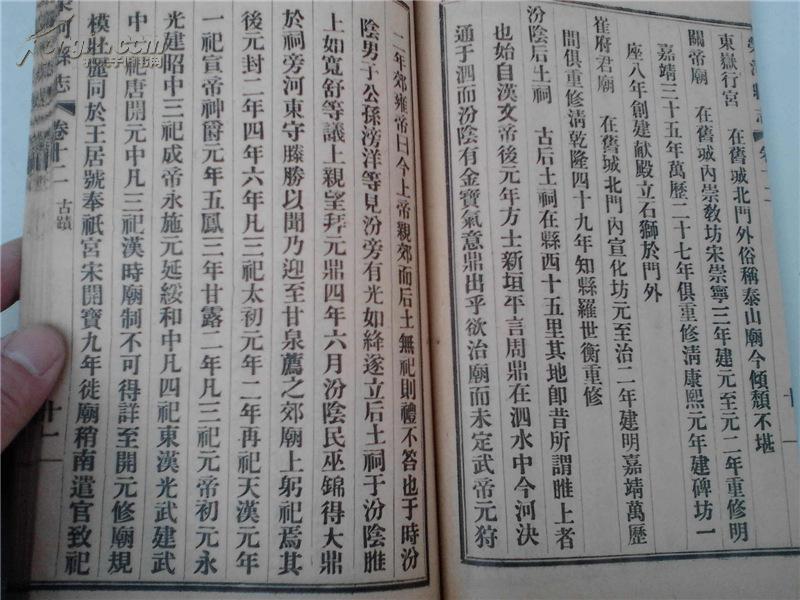 東嶽行宮 在舊城北門外俗稱泰山廟今傾頹不堪
關帝廟 在舊城內崇教坊宋崇寧三年建元至元二年重修明
嘉靖三十五年萬歷二十七年俱重修清康熙元年建碑坊一
座八年創建獻殿立石獅於門外
崔府君廟 在舊城北門內宣化坊元至治二年建明嘉靖萬歷
間俱重修清乾隆四十九年知縣羅世衡重修
汾陰后土祠 古后土祠在縣西四十五里其地卽昔所謂脽上者
也始自漢文帝後元年方士新垣平言周鼎在泗水中今河決
通于泗而汾陰有金寶氣意鼎出乎欲治廟而未定武帝元狩
二年郊雍帝曰今上帝親郊而后土無祀則禮不答也于時汾
陰男子公孫滂洋等見汾旁有光如絳遂立后土祠于汾陰脽
上如寬舒等議上親望拜元鼎四年六月汾陰民巫錦得大鼎
於祠旁河東守滕勝以聞乃迎至甘泉薦之郊廟上躬祀焉其
後元封二年四年六年凡三祀太初元年二年再祀天漢元年
一祀宣帝神爵元年五鳳三年甘露二年凡三祀元帝初元永
光建昭中三祀成帝永施元延綏和中凡四祀東漢光武建武
中一祀唐開元中凡三祀漢時廟制不可得詳至開元修廟規
模壯麗同於王居號奉祇宮宋開寶九年徙廟稍南遣官致祀
河縣志 卷十二 古蹟 十二